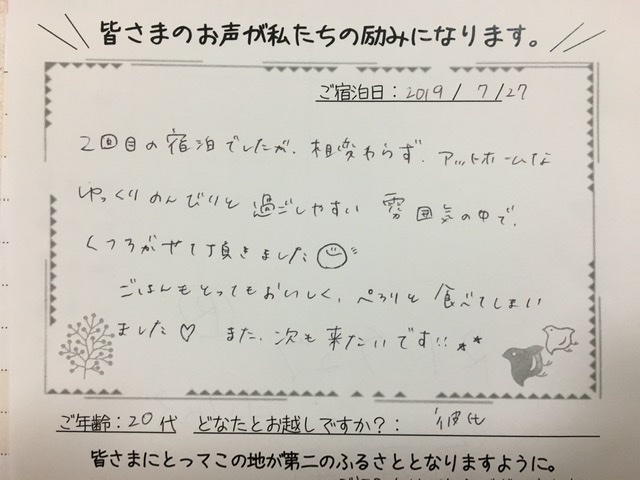 皆さまのお声が私たちの励みになります。
ご宿泊日：2019/7/27
2回目の宿泊でしたが、相変わらず、アットホームな
ゆっくりのんびりと過ごしやすい雰囲気の中で、
くつろがせて頂きました
ごはんもとってもおいしく、ぺろりと食べてしまい
ました♡ また、次も来たいです!!
ご年齢：20代 どなたとお越しですか？：
皆さまにとってこの地が第二のふるさととなりますように。